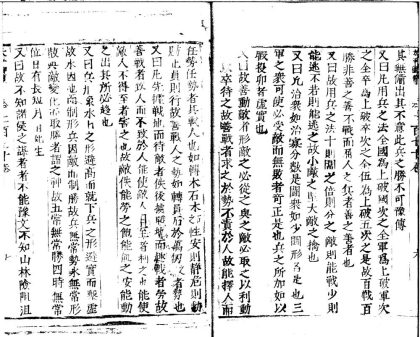 其無備出其不意此兵之勝不可豫傳
又曰凡用兵之法全國爲上破國次之全軍爲上破軍次
之全卒爲上破卒次之全伍爲上破五次之是故百戰百
勝非善之善不戰而屈人之兵者善之善者也
又曰故用兵之法十則圍之倍則分之敵則能戰少則
能逃不若則能逃之故小敵之堅大敵之擒也
又曰凡治衆如治寡分數是鬬衆如少鬬形名是也三
軍之衆可使必受敵而無敗者可正是也兵之所加如以
投卵者虛實也
又曰善動敵者形之敵必從之與之敵必取之以利動
以卒待之故善戰者求之於勢不責於人故能擇人而
任勢任勢者其戰人也如轉木石木石之性安則靜危則動
則止員則行故善戰人之勢如轉員石於萬仞之山者勢也
又曰凡先據戰地而待敵者佚後據戰地而趨戰者勞故
善戰者致人而不致於人能使敵人自至者利之也能使
敵人不得至者害之也故敵佚能勞之飽能飢之安能動
之出其所必趨也
又曰兵形象水水之形避高而就下兵之形避實而擊虛
故水因地而制形兵因敵而制勝故兵無常勢水無常形
能與敵變化取勝者謂之神故五行無常勝四時無常
位日有長短月有死生
又曰故不知諸侯之謀者不能豫交不知山林險阻沮